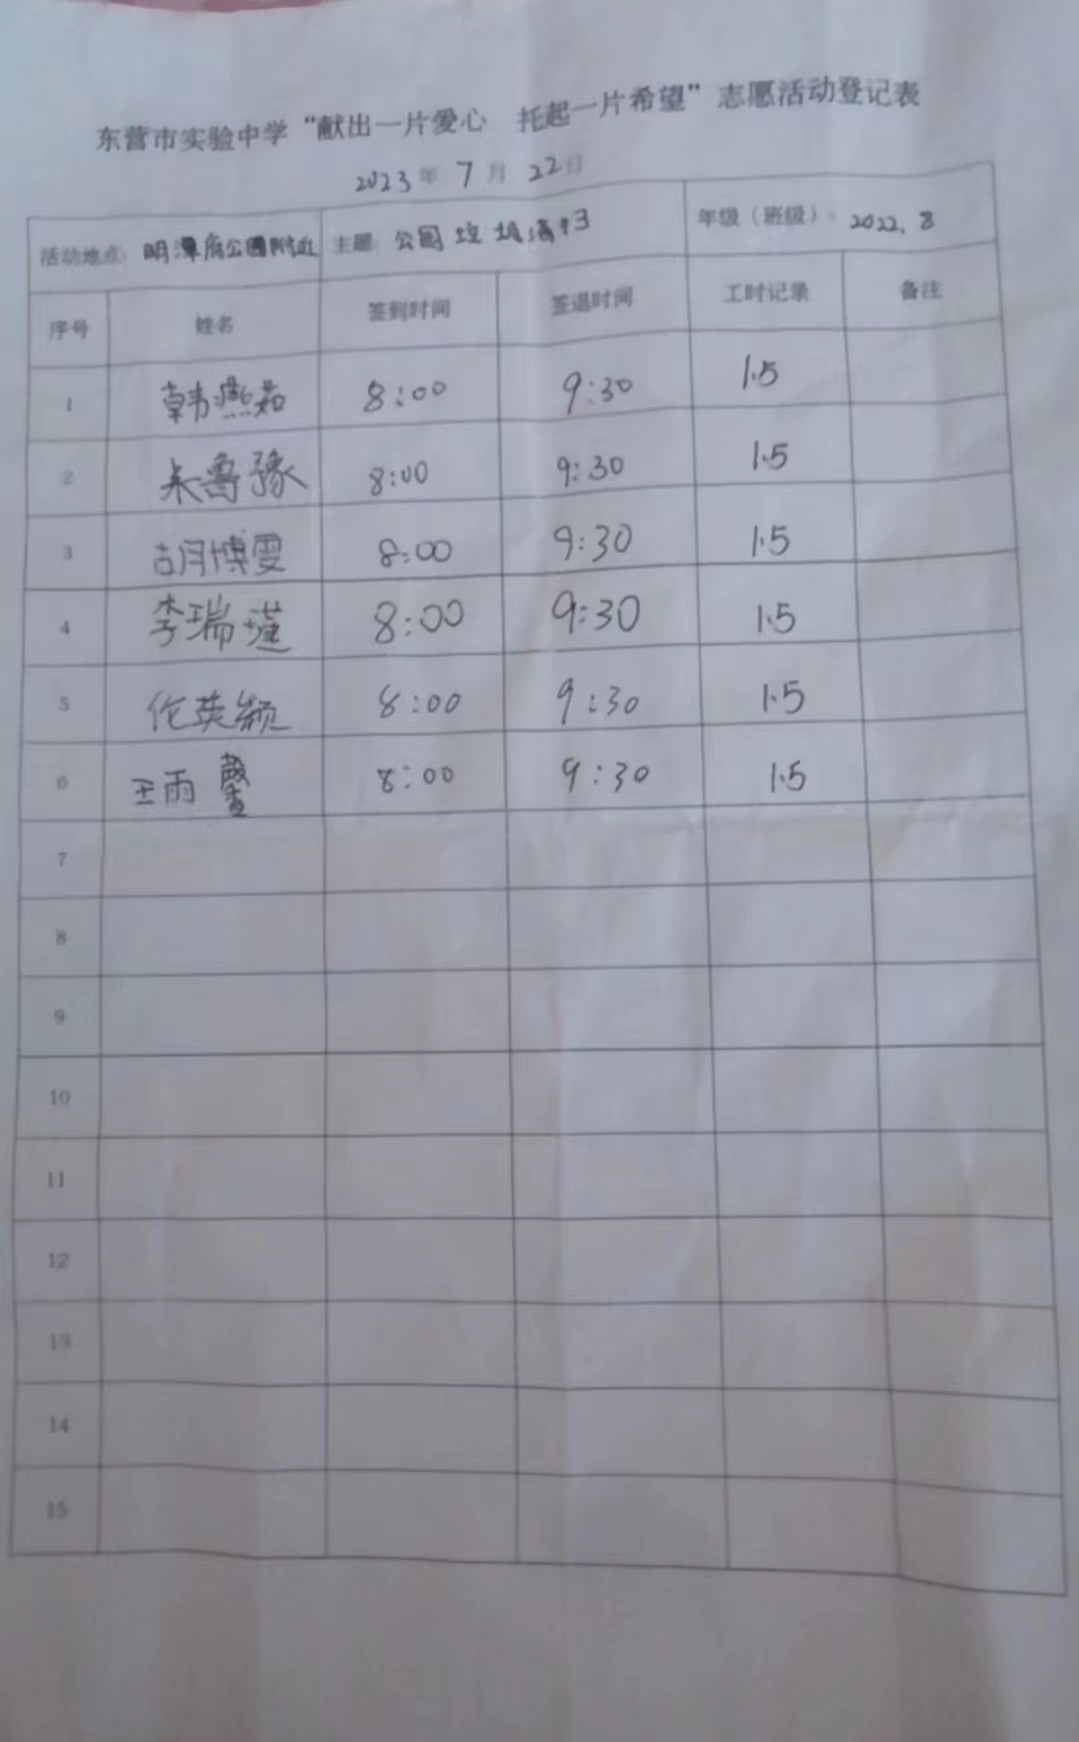 东营市实验中学“献出一片爱心 托起一片希望”志愿活动登记表
2023年 7月 22日
活动地点：明潭府公园附近 主题：公园垃圾清扫 年级（班级）：2022.8
序号 姓名 签到时间 签退时间 工时记录 备注
1 韩燕茹 8:00 9:30 1.5
2 朱鲁豫 8:00 9:30 1.5
3 胡博雯 8:00 9:30 1.5
4 李瑞瑾 8:00 9:30 1.5
5 伦英颖 8:00 9:30 1.5
6 王雨馨 8:00 9:30 1.5
7
8
9
10
11
12
13
14
15